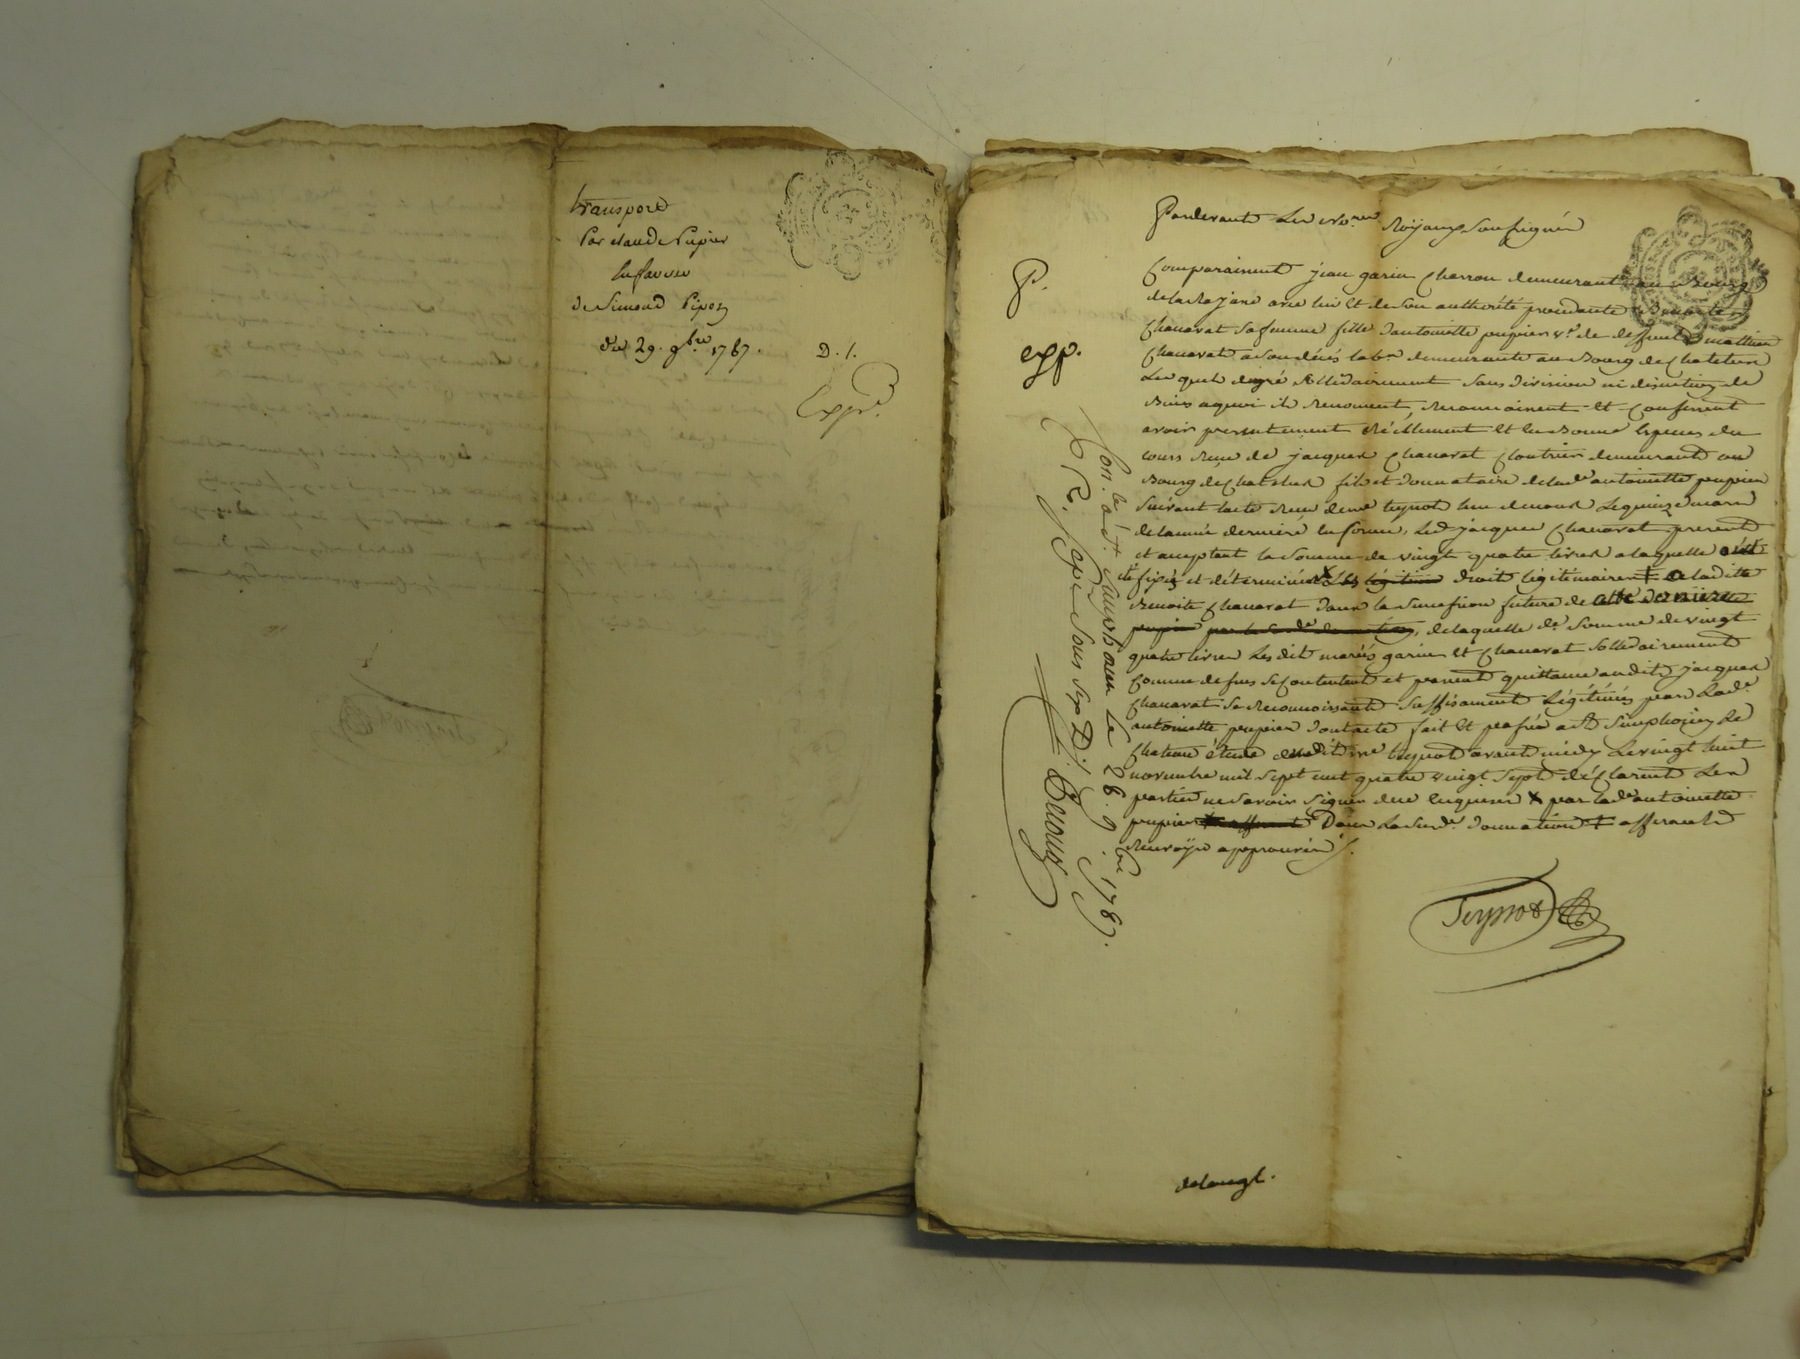 transport
Par claude Pupier
en faveur
de Simond Pipon
du 29. 9bre 1787.
D. 1.
Expé.
Pardevant Les nores Royaux Soussignés
P.
exp.
Comparaissent jean garin Charron demeurant au Bourg
de la Rajasse avec lui et de son authorité procedante Benoite
Chanavat sa femme fille d'antoinette pupier vve de deffunt mathieu
Chanavat a son décès labr demeurante au Bourg de Chatelus
Lesquels de gré sollidairement sans division ni discution de
Biens a quoi ils renoncent, reconnoissent et confessent
avoir presentement réellement et en Bonne especes du
cours reçu de jacques Chanavat Cloutrier demeurant au
Bourg de Chatelus fils et donnataire de lade antoinette pupier
Suivant l'acte reçu de me teynot l'un de nous Le quinze mars
de l'année derniere en forme, Led. jacques Chanavat present
et acceptant la Somme de vingt quatre livres a laquelle
été fixés et déterminés X Les légitime droits légitimaires + de ladite
Benoite Chanavat dans la succession future de cette derniere
pupier par la de donnation, de laquelle de somme de vingt
quatre livres Lesdits mariés garin et Chanavat sollidairement
comme dessus se contentent et passent quittance audit jacques
Chanavat se reconnoissants suffisament Légitimés par Lade
antoinette pupier dont acte fait et passé a St Simphorien Le
Chateau étude dudit me teynot avant midy Le vingt huit
novembre mil sept cent quatre vingt sept déclarent Les
parties ne savoir signer de ce enquises X par lade antoinette
pupier Dans La susde donnation + afferants
Renvoys approuvés
Teynot
Con. le à St. Simphorien Le 28. 9bre 1787.
R. Sept Sous six D.
delaugl.